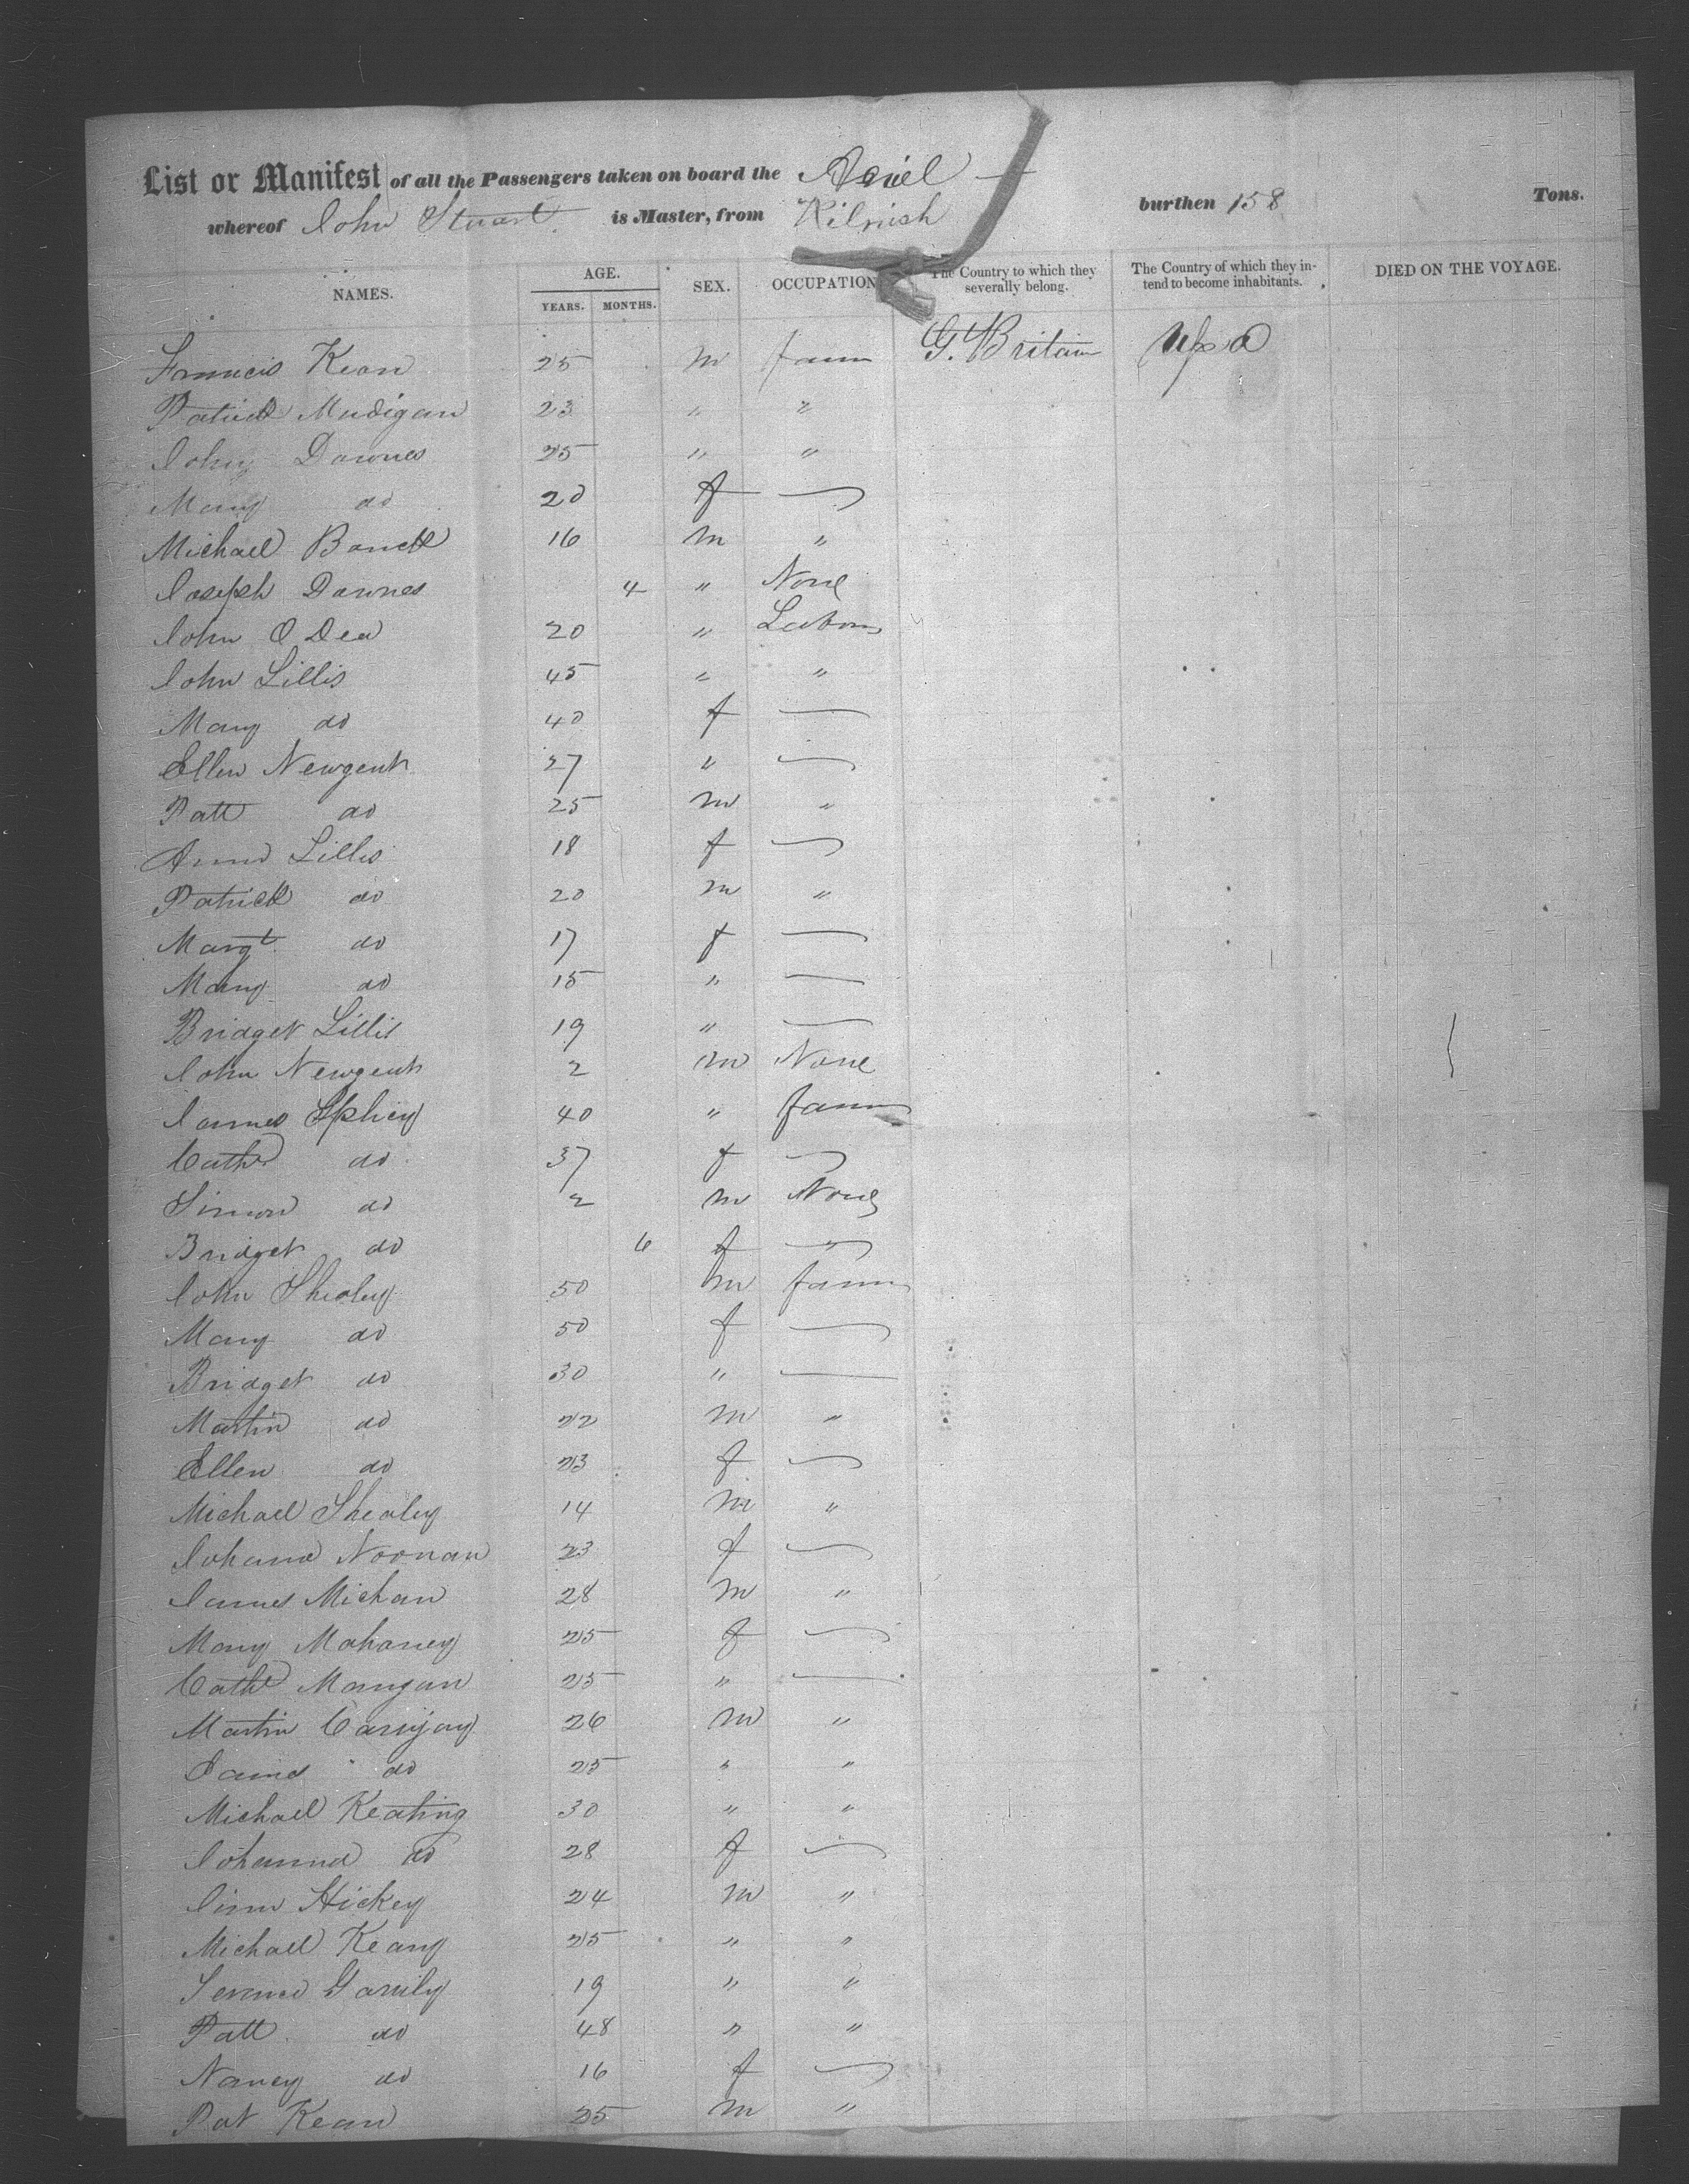 List or Manifest of all the Passengers taken on board the Ariel
whereof John Stuart is Master, from Kilrush burthen 158 Tons.
NAMES. AGE. YEARS. MONTHS. SEX. OCCUPATION The Country to which they severally belong. The Country of which they intend to become inhabitants. DIED ON THE VOYAGE.
Francis Kean 25 m farm G. Britain USA
Patrick Madigan 23 " "
John Downes 25 " "
Mary do 20 f —
Michael 16 m "
Joseph Downes 4 " None
John O Dea 20 " Labor
John Lillis 45 " "
Mary do 40 f —
Ellen Newgent 27 " —
Patt do 25 m "
Anne Lillis 18 f —
Patrick do 20 m "
Margt do 17 f —
Mary do 15 " —
Bridget Lillis 19 " —
John Newgent 2 m None
James 40 " farm
Cathe do 37 f —
Simon do 2 m None
Bridget do 6 f "
John Shealey 50 m farm
Mary do 50 f —
Bridget do 30 " —
Martin do 22 m "
Ellen do 23 f —
Michael Shealey 14 m "
Johana Noonan 23 f —
James Michan 28 m "
Mary Mahaney 25 f —
Cathe Mangan 25 " —
Martin 26 m "
James do 25 " "
Michael Keating 30 " "
Johanna do 28 f —
Hickey 24 m "
Michael Keany 25 " "
19 " "
Patt do 48 " "
Nancy do 16 f —
Pat Kean 25 m "